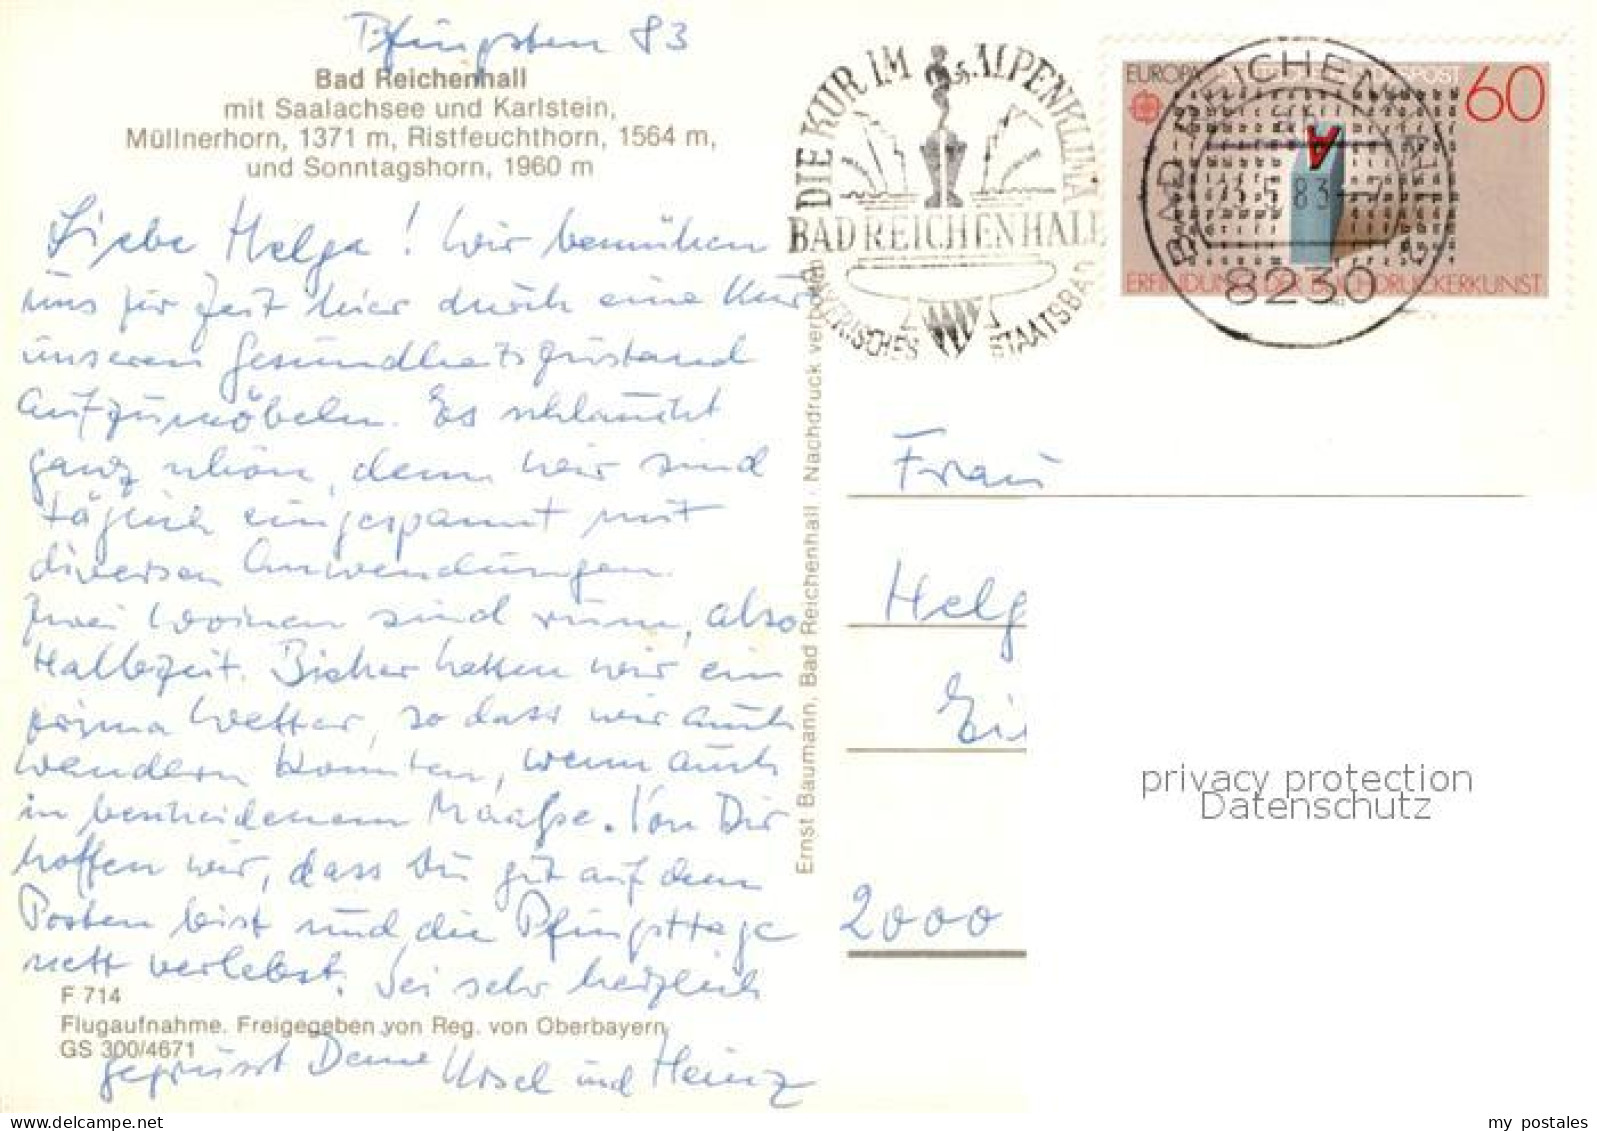 Pfingsten 83
Bad Reichenhall
mit Saalachsee und Karlstein,
Müllnerhorn, 1371 m, Ristfeuchthorn, 1564 m,
und Sonntagshorn, 1960 m
Liebe Helga! Wir bemühen
uns zur Zeit hier durch eine Kur
unseren Gesundheitszustand
aufzumöbeln. Es schlaucht
ganz schön, denn wir sind
täglich eingespannt mit
diversen Anwendungen.
Zwei Wochen sind rum, also
Halbzeit. Bisher hatten wir ein
prima Wetter, so dass wir auch
wandern konnten, wenn auch
in bescheidenem Maaße. Von Dir
hoffen wir, dass Du gut auf dem
Posten bist und die Pfingsttage
nett verlebst. Sei sehr herzlich
gegrüsst Deine Ursel und Heinz
F 714
Flugaufnahme. Freigegeben von Reg. von Oberbayern
GS 300/4671
Ernst Baumann, Bad Reichenhall · Nachdruck verboten
DIE KUR IM ALPENKLIMA
BAD REICHENHALL
BAYERISCHES STAATSBAD
EUROPA DEUTSCHE BUNDESPOST 60
A
ERFINDUNG DER BUCHDRUCKERKUNST
BAD REICHENHALL
23.5.83
8230
Frau
Helg
Ei
2000
privacy protection
Datenschutz
my postales